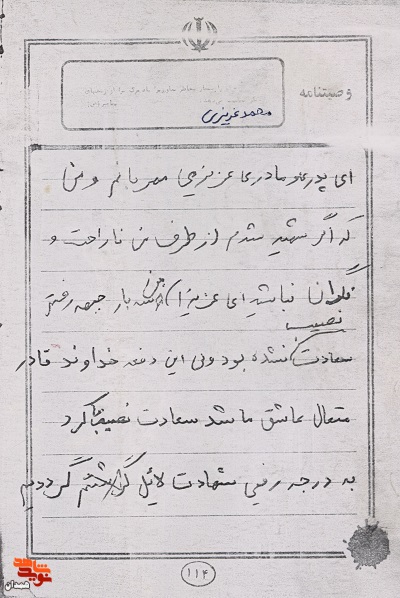 وصیتنامه
محمد عزیزی
ای پدر و مادر عزیز مهربانم و من
که اگر شهید شدم از طرف من ناراحت و
نگران نباشید ای عزیز بار جبهه رفتم
نصیب
سعادت نشده بود ولی این دفعه خداوند قادر
متعال عاشق ما شد سعادت نصیب کرد
به درجه رفیع شهادت نائل گردیدیم
۱۱۴
نوید شاهد
همدان